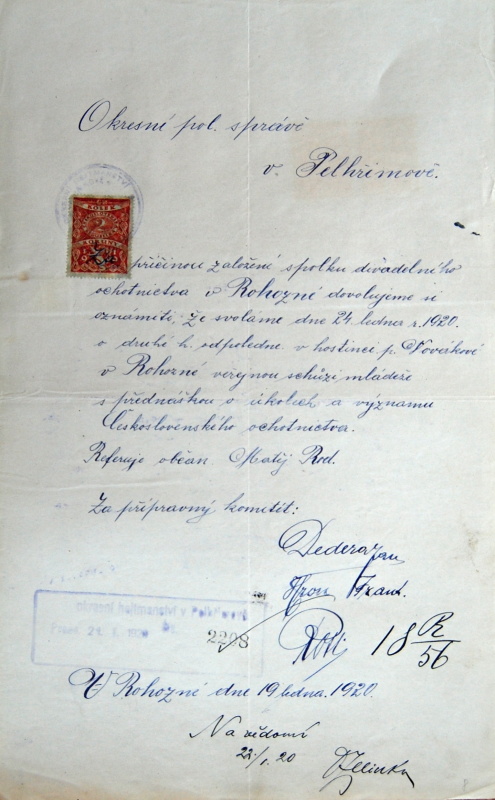 Okresní pol. správě
v. Pelhřimově.
KOLEK
2
KORUNY
příčinou založení spolku divadelního
ochotnictva v Rohozné dovolujeme si
oznámiti, že svoláme dne 24. ledna r. 1920.
o druhé h. odpoledne v hostinci p. Nověkové
v Rohozné veřejnou schůzi mládeže
s přednáškou o úkolech a významu
Československého ochotnictva.
Referuje občan Matěj Rod.
Za přípravný komitét:
Dedera Jan
Hron Frant.
hejtmanství v
2298
18 R/56
V Rohozné dne 19 ledna 1920.
Na vědomí
22/1. 20
Jelinka